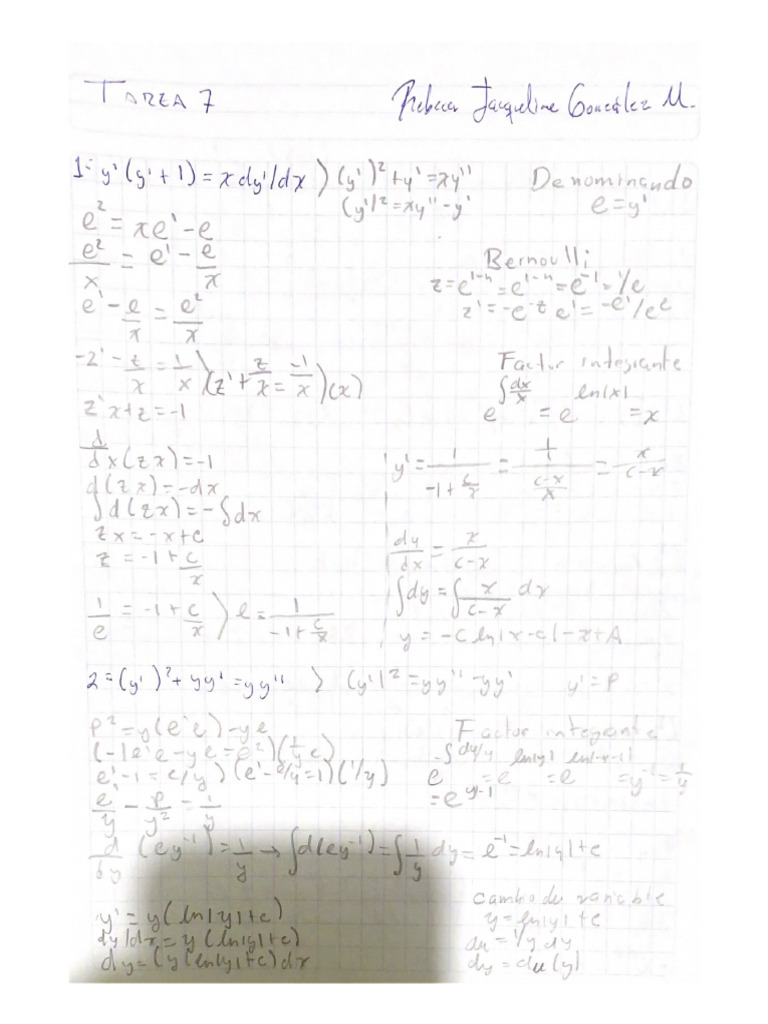 TAREA 7
Rebeca Jacqueline González M.
1= y'(y'+1) = x dy'/dx ⟩ (y')² + y' = xy''
(y')² = xy'' - y'
Denominando
e = y'
e² = xe' - e
e²/x = e' - e/x
e' - e/x = e²/x
Bernoulli
z = e^(1-n) = e^(1-n) = e^(-1) = 1/e
z' = -e^(-2) e' = -e'/e²
-z' - z/x = 1/x ⟩ (z' + z/x = -1/x)(x)
z'x + z = -1
Factor integrante
e^(∫dx/x) = e^(ln|x|) = x
d/dx (zx) = -1
d(zx) = -dx
∫d(zx) = -∫dx
zx = -x + c
z = -1 + c/x
1/e = -1 + c/x ⟩ e = 1/(-1 + c/x)
y' = 1/(-1 + c/x) = 1/((c-x)/x) = x/(c-x)
dy/dx = x/(c-x)
∫dy = ∫ x/(c-x) dx
y = -c ln|x-c| - x + A
2= (y')² + yy' = yy'' ⟩ (y')² = yy'' - yy'
y' = P
P² = y(e'e) - ye
(-1e'e - ye = e²)(1/ye)
e' - 1 = e/y ⟩ (e' - e/y = 1)(1/y)
e'/y - P/y² = 1/y
Factor integrante
e^(-∫dy/y) = e^(ln|y|) = e^(ln|-x-1|) = y^(-1) = 1/y
= e^(y-1)
d/dy (ey^(-1)) = 1/y → ∫d(ey^(-1)) = ∫ 1/y dy = e^(-1) = ln|y| + c
y' = y(ln|y| + c)
dy/dx = y(ln|y| + c)
dy = (y(ln|y| + c) dx
cambio de variable
y = ln|y| + c
du = 1/y dy
dy = du(y)